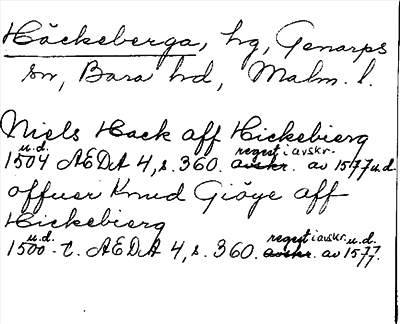 Häckeberga, hg, Genarps
sn, Bara hd, Malm. l.
Niels Hack aff Hickebierg
u.d. regest i avskr.
1504 AEDA 4, s. 360. avskr. av 1577 u.d.
offuer Knud Giöye aff
Hickebierg
u.d. regest i avskr. u.d.
1500-t. AEDA 4, s. 360. avskr. av 1577.